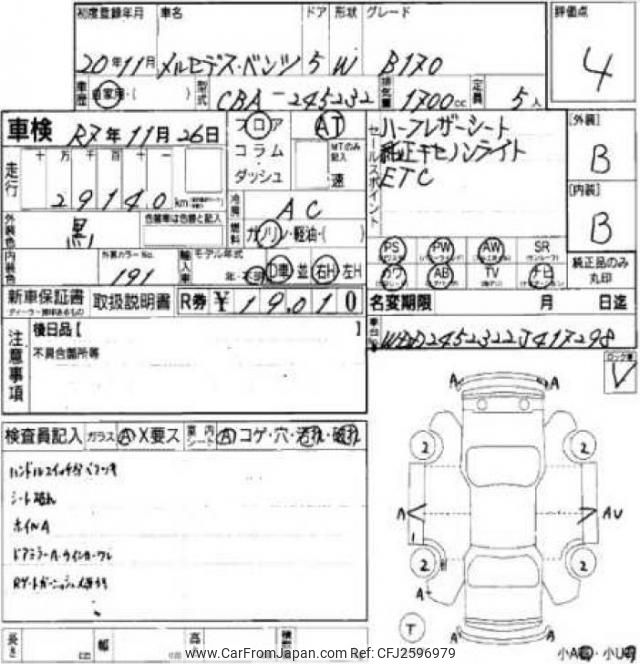 初度登録年月 車名 ドア 形状 グレード 評価点
20年11月 メルセデス・ベンツ 5 W B170 4
車歴 自家用・( ) 型式 CBA-245232 排気量 1700cc 定員 5人
車検 R7年11月26日
フロア AT
コラム MTのみ記入
ダッシュ 速
セールスポイント
ハーフレザーシート
純正キセノンライト
ETC
[外装]
B
[内装]
B
走行 十 万 千 百 十 一
29140 km
冷房 AC
燃料 ガソリン・軽油・( )
外装色 黒 色替車は色替と記入
内装色 外装カラーNo. 191
輸入車 モデル年式 D車 並 右H 左H
PS PW AW SR
カワ AB TV ナビ
純正品のみ丸印
新車保証書 取扱説明書 R券 ¥ 19,010
ディーラー機構あるもの
名変期限 月 日迄
WDD2452322J417298
注意事項
後日品[ ]
不具合箇所等
ロック車
レ
検査員記入 ガラス A X要ス 室内シート A コゲ・穴・汚れ・破れ
ハンドルスイッチ部ベタツキ
シート破れ
ホイルA
ドアミラーA・ウインカーワレ
Rゲートガーニッシュ
A A
2 2
A AU
1
2 2
A
T
A A
長さ 幅 高
www.CarFromJapan.com Ref No. CFJ2596979